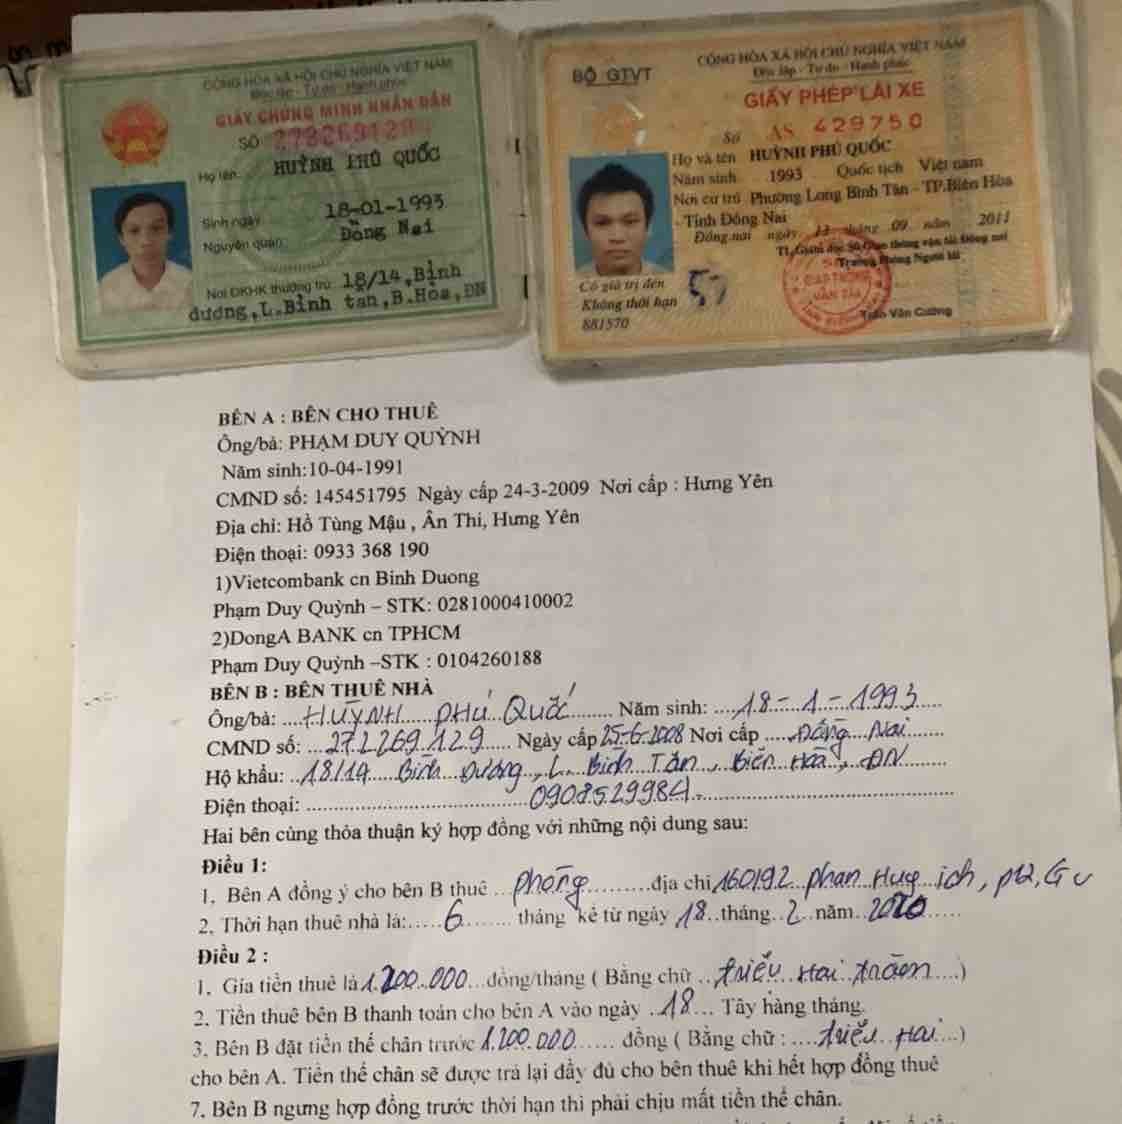 CỘNG HÒA XÃ HỘI CHỦ NGHĨA VIỆT NAM
Độc lập - Tự do - Hạnh phúc
GIẤY CHỨNG MINH NHÂN DÂN
SỐ
Họ tên: HUỲNH PHÚ QUỐC
Sinh ngày 18-01-1993
Nguyên quán: Đồng Nai
Nơi ĐKHK thường trú: 18/14, Bình
dương, L.Bình tân, B.Hòa, ĐN
BỘ GTVT
CỘNG HÒA XÃ HỘI CHỦ NGHĨA VIỆT NAM
Độc lập - Tự do - Hạnh phúc
GIẤY PHÉP LÁI XE
Số AS 429750
Họ và tên HUỲNH PHÚ QUỐC
Năm sinh 1993 Quốc tịch Việt nam
Nơi cư trú Phường Long Bình Tân - TP.Biên Hòa
- Tỉnh Đồng Nai
Đồng nai ngày 13 tháng 09 năm 2011
TL.Giám đốc Sở Giao thông vận tải Đồng nai
Trưởng Phòng Người lái
Có giá trị đến
Không thời hạn
881570
SỞ
GIAO THÔNG
VẬN TẢI
Trần Văn Cường
BÊN A : BÊN CHO THUÊ
Ông/bà: PHẠM DUY QUỲNH
Năm sinh:10-04-1991
CMND số: 145451795 Ngày cấp 24-3-2009 Nơi cấp : Hưng Yên
Địa chỉ: Hồ Tùng Mậu , Ân Thi, Hưng Yên
Điện thoại: 0933 368 190
1)Vietcombank cn Binh Duong
Phạm Duy Quỳnh – STK: 0281000410002
2)DongA BANK cn TPHCM
Phạm Duy Quỳnh –STK : 0104260188
BÊN B : BÊN THUÊ NHÀ
Ông/bà: HUỲNH PHÚ QUỐC Năm sinh: 18-1-1993
CMND số: 272269129 Ngày cấp 25-6-2008 Nơi cấp Đồng Nai
Hộ khẩu: 18/14 Bình Dương, L. Bình Tân, Biên Hòa, ĐN
Điện thoại: 0908529984
Hai bên cùng thỏa thuận ký hợp đồng với những nội dung sau:
Điều 1:
1. Bên A đồng ý cho bên B thuê phòng địa chỉ 160/92 phan Huy ich, p12, Gv
2. Thời hạn thuê nhà là: 6 tháng kể từ ngày 18 tháng 2 năm 2020
Điều 2 :
1. Gía tiền thuê là 1.200.000 đồng/tháng ( Bằng chữ triệu Hai trăm )
2. Tiền thuê bên B thanh toán cho bên A vào ngày 18 Tây hàng tháng.
3. Bên B đặt tiền thế chân trước 1.200.000 đồng ( Bằng chữ : triệu Hai )
cho bên A. Tiền thế chân sẽ được trả lại đầy đủ cho bên thuê khi hết hợp đồng thuê
7. Bên B ngưng hợp đồng trước thời hạn thì phải chịu mất tiền thế chân.